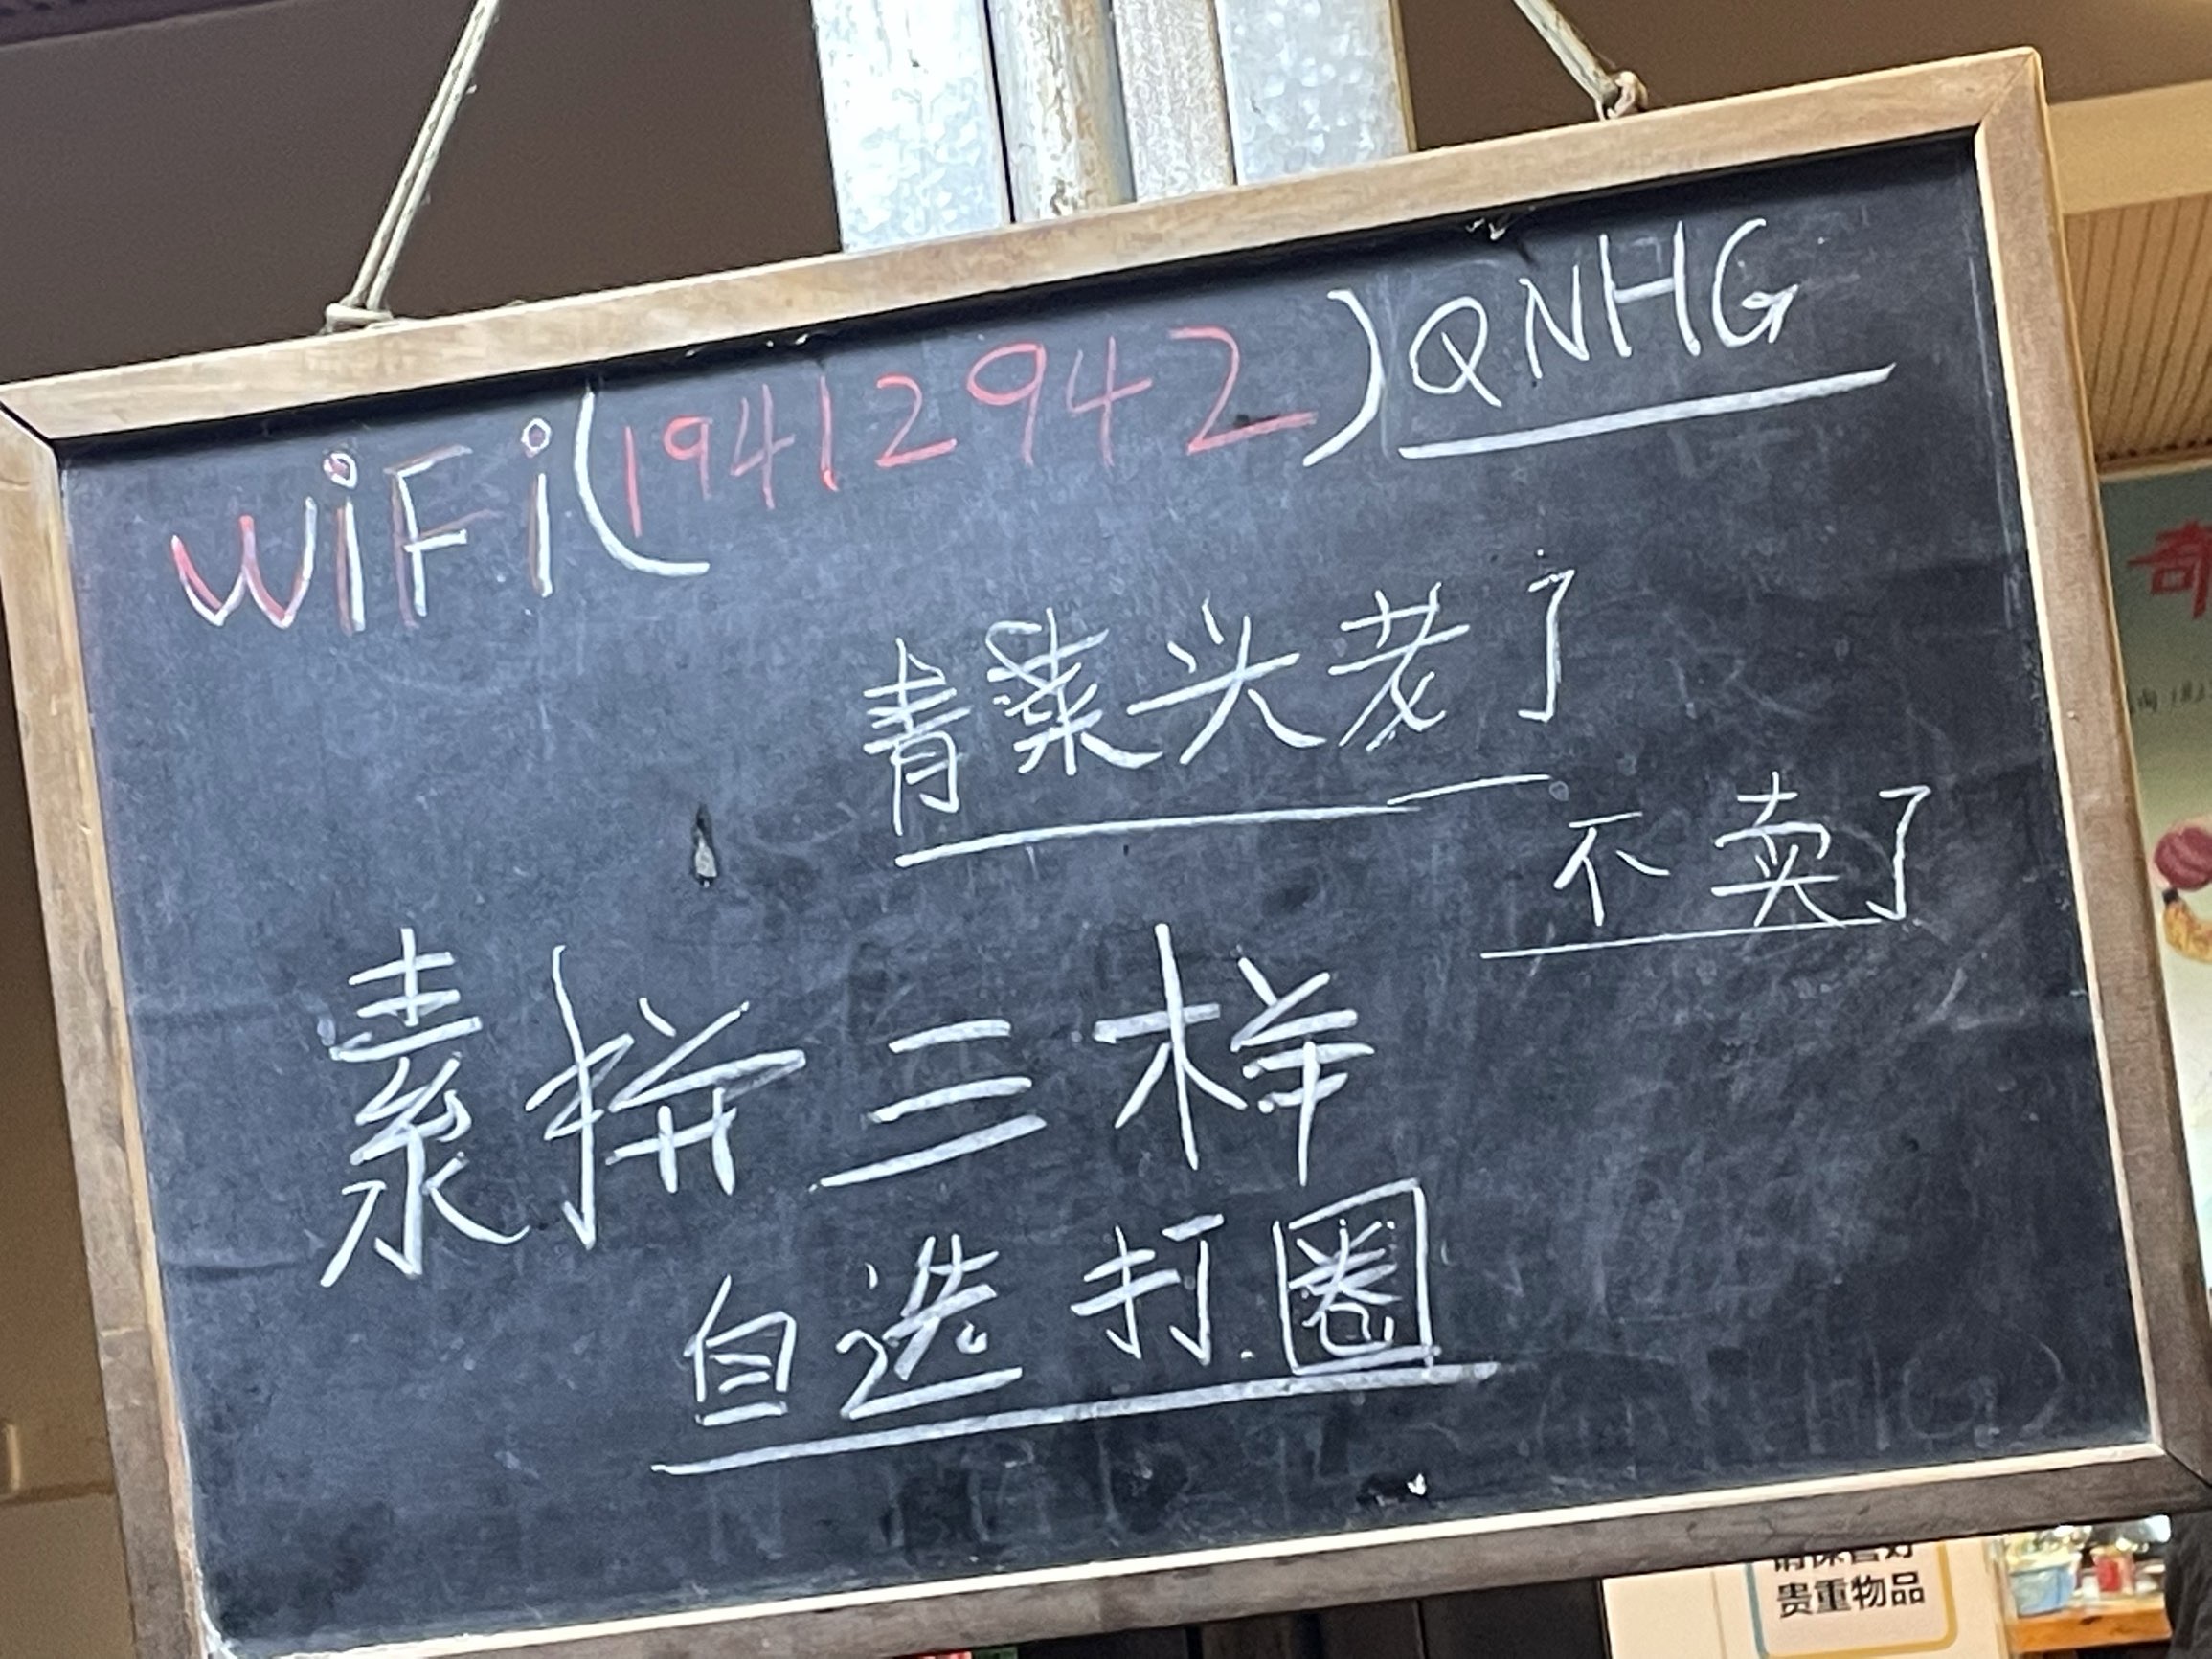 WiFi(19412942)QNHG
青菜头老了
不卖了
素拼三样
自选打圈
奇
请保管好
贵重物品